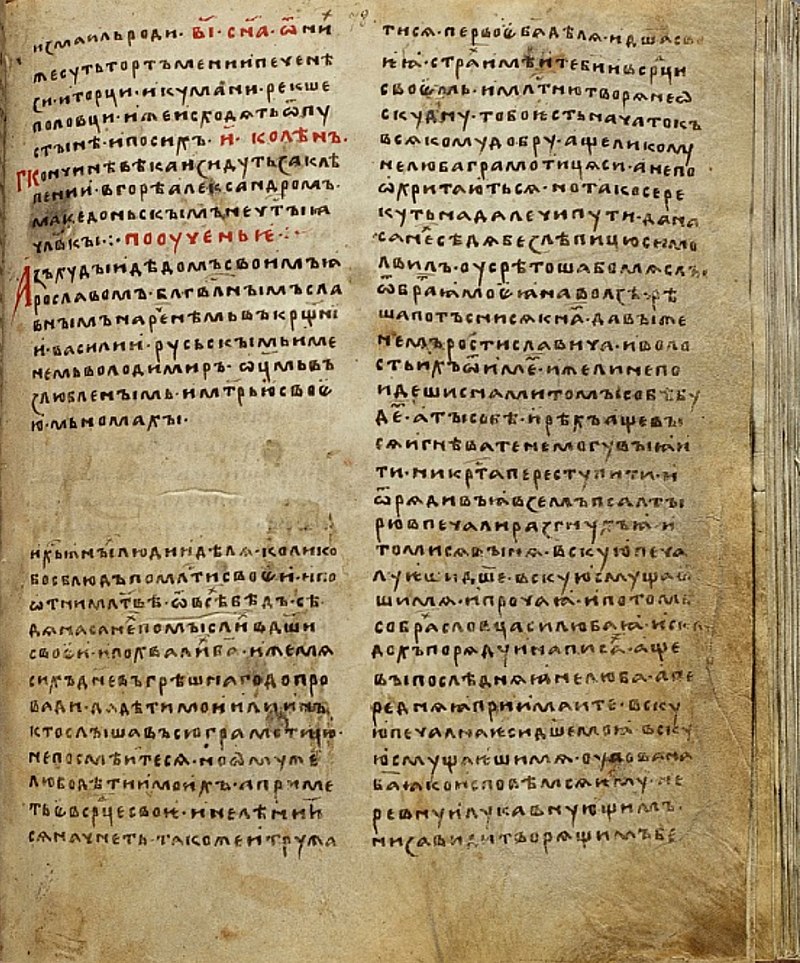 исмаильроди· в҃і· сн҃а· ѿ ни
же суть тортъмени и печенѣ
зи· и торци· и кумани· рекше
половци· иже исходѧть ѿ пу
стынѣ· и по сихъ· и҃· колѣнъ·
к кончинѣ вѣка изидуть заклѣ
пении· в горѣ александромъ·
македоньскымъ нечтыꙗ
чл҃вкы ⁘ поученье ⁘
Азъ худыи дѣдомъ своимъ ꙗ
рославомъ· блгв҃лнымъ сла
внымъ нареч҃нѣмь въ кр҃щнї
и· василии· русьскымь име
немь володимиръ· ѿц҃мь въ
злюбленымь· и мт҃рью своѥ
ю· мьномахы·
и хрь҃ꙗных людии дѣлѧ· колико
бо сблюдъ по млт҃и своѥи· и по
ѿтни млт҃вѣ· ѿ всѣ бѣдъ· сѣ
дѧ на санех помыслих в дш҃и
своѥи· и похвалих ба҃· иже мѧ
сихъ днев грѣшнаго допро
вади· да дѣти мои или инъ
кто слышавъ сю грамотицю·
не посмѣитесѧ· но ѡму же
люба дѣтии моихъ· а приме
ть ѥ в срц҃е своѥ· и не лѣнитї
сѧ начнеть· такоже и тружа
тисѧ· первоѥ ба҃ дѣлѧ· и дша҃ своѥ
ꙗ· страх имѣите би҃и в срц҃и
своѥмь· и млт҃ню творѧ неѡ
скудну· то бо ѥсть начатокъ
всѧкому добру· аще ли кому
не люба грамотицѧ си· а не по
ѡхритаютьсѧ· но тако се ре
куть на далечи пути· да на
санех сѣдѧ безлѣпицю си мо
лвилъ· оусрѣтоша бо мѧ слы
ѿ браꙗ моѥꙗ на волзѣ· рѣ
ша потъснисѧ к нам· да выже
немъ ростиславича· и воло
сть ихъ ѿимем· иже ли не по
идеши с нами то мы собѣ бу
дем· а ты собѣ· и рѣхъ аще вы
сѧ и гнѣваете не могу вы ꙗ и
ти· ни крт҃а переступити· и
ѿрѧдивъ ꙗ вземъ псалты
рю в печали разгнухъ ꙗ и
то ми сѧ вынѧ· вскую печа
луѥши дш҃е· вскую смущаѥ
ши мѧ· и прочаꙗ· и потомь
собрах словца си любаꙗ· и скла
дохъ по рѧду и написах· аще
вы послѣднѧꙗ не люба· а пе
реднѧꙗ приимаите· вску
ю печална ѥси дш҃е моꙗ· вску
ю смущаѥши мѧ· оупова на
ба҃ ꙗко исповѣмсѧ ѥму· не
ревнуи лукавнующимъ·
ни завиди творѧщимъ бе